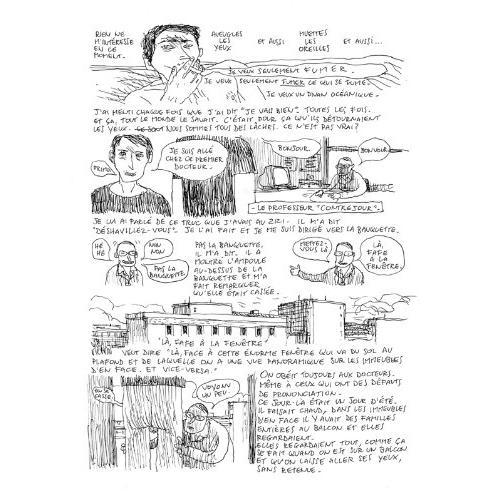 RIEN NE
M'INTÉRESSE
EN CE
MOMENT.
AVEUGLES
LES
YEUX
ET AUSSI
MUETTES
LES
OREILLES
ET AUSSI...
JE VEUX SEULEMENT FUMER.
JE VEUX SEULEMENT FUMER CE QUI SE FUME.
JE VEUX UN DIVAN OCÉANIQUE.
J'AI MENTI CHAQUE FOIS QUE J'AI DIT "JE VAIS BIEN". TOUTES LES FOIS.
ET ÇA, TOUT LE MONDE LE SAVAIT. C'ÉTAIT POUR ÇA QU'ILS DÉTOURNAIENT
LES YEUX. NOUS SOMMES TOUS DES LÂCHES. CE N'EST PAS VRAI?
PRIMO.
JE SUIS ALLÉ
CHEZ CE PREMIER
DOCTEUR.
BONJOUR.
BONJOUR.
- LE PROFESSEUR "CONTREJOUR". -
JE LUI AI PARLÉ DE CE TRUC QUE J'AVAIS AU ZIZI. IL M'A DIT
"DÉSHABILLEZ-VOUS". JE L'AI FAIT ET JE ME SUIS DIRIGÉ VERS LA BANQUETTE.
HÉ
HÉ
NON
NON
PAS LA
BANQUETTE
PAS LA BANQUETTE,
IL M'A DIT. IL A
MONTRÉ L'AMPOULE
AU-DESSUS DE LA
BANQUETTE ET M'A
FAIT REMARQUER
QU'ELLE ÉTAIT CASSÉE.
METTEZ-
VOUS LÀ
LÀ,
FAFE
À LA
FENÊTRE.
"LÀ, FAFE À LA FENÊTRE"
VEUT DIRE "LÀ, FACE À CETTE ÉNORME FENÊTRE QUI VA DU SOL AU
PLAFOND ET DE LAQUELLE ON A UNE VUE PANORAMIQUE SUR LES IMMEUBLES
D'EN FACE. ET VICE-VERSA."
VOYONS
UN PEU.
ON OBÉIT TOUJOURS AUX DOCTEURS.
MÊME À CEUX QUI ONT DES DÉFAUTS
DE PRONONCIATION.
CE JOUR-LÀ ÉTAIT UN JOUR D'ÉTÉ.
IL FAISAIT CHAUD, DANS LES IMMEUBLES
D'EN FACE IL Y AVAIT DES FAMILLES
ENTIÈRES AU BALCON ET ELLES
REGARDAIENT.
ELLES REGARDAIENT TOUT, COMME ÇA
SE FAIT QUAND ON EST SUR UN BALCON
ET QU'ON LAISSE ALLER SES YEUX,
SANS RETENUE.